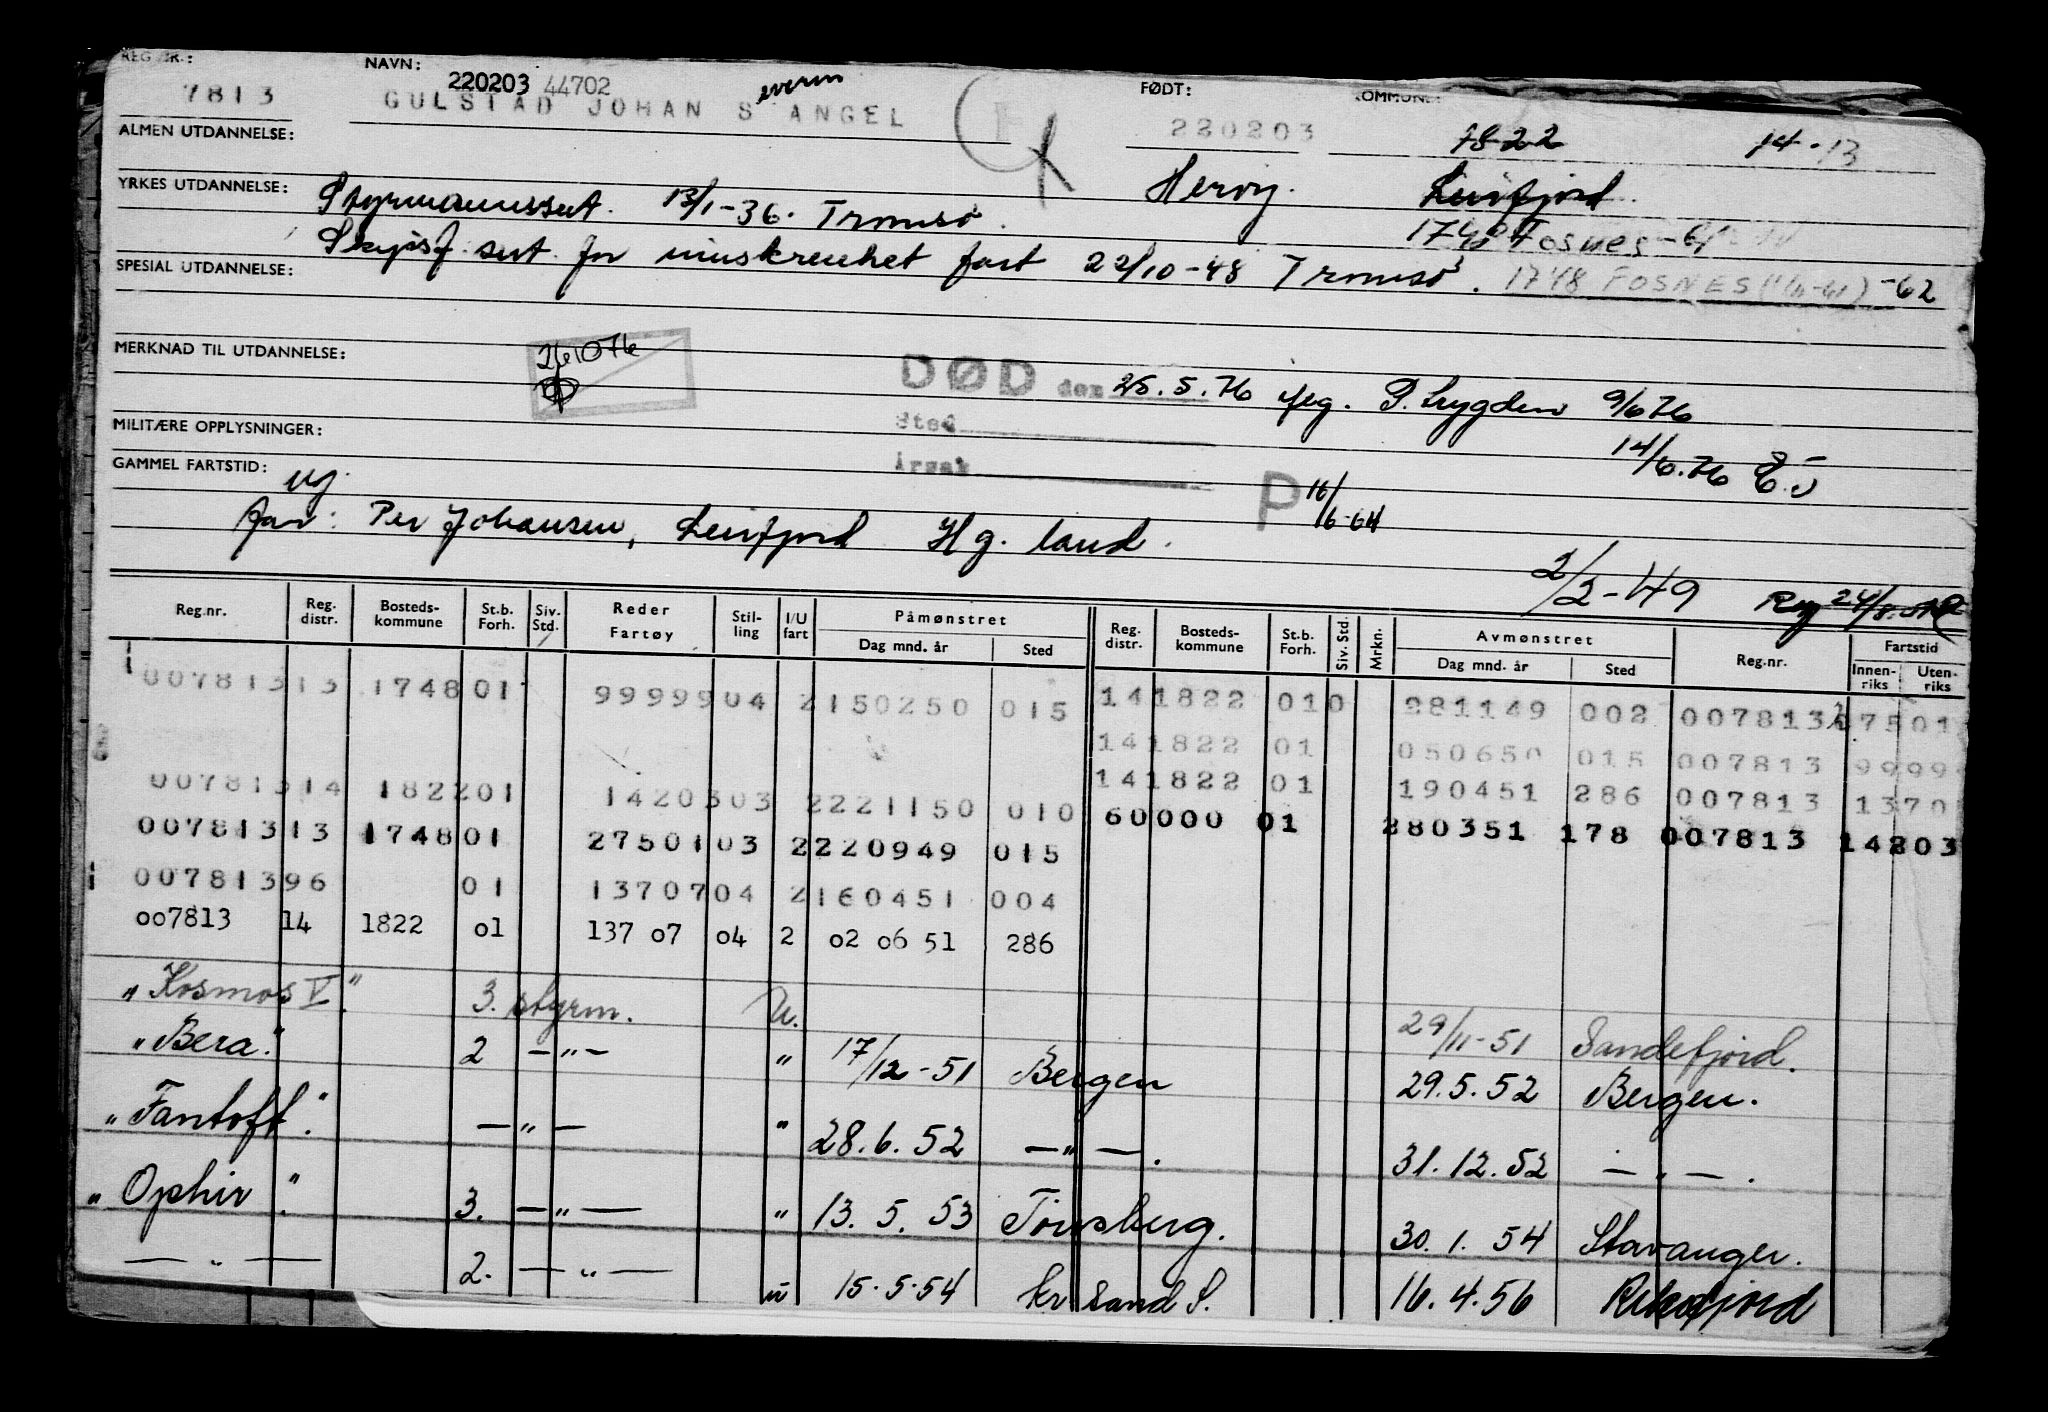 REG. NR.: NAVN: FØDT: KOMMUNE:
220203 44702
7813 GULSTAD JOHAN S ANGEL 220203 1822 14-13
ALMEN UTDANNELSE:
Herøy. Leirfjord
YRKES UTDANNELSE: Styrmannssert. 13/1-36. Tromsø.
1748 Fosnes-61
Skipsf. sert. for innskrenket fart 22/10-48 Tromsø. 1748 FOSNES (1/11-61) -62
SPESIAL UTDANNELSE:
MERKNAD TIL UTDANNELSE: 261076
DØD den 25.5.76 iflg. P.trygden 9/6 76
Sted
MILITÆRE OPPLYSNINGER: 14/6.76
Årsak
GAMMEL FARTSTID: ug. P 16/6-64
far: Per Johansen, Leirfjord Hg.land.
2/2-49 Reg 24/8.
Reg.nr. Reg. distr. Bosteds- kommune St.b. Forh. Siv. Std. Reder Fartøy Stil- ling I/U fart Påmønstret Dag mnd. år Sted Reg. distr. Bosteds- kommune St.b. Forh. Siv. Std. Mrkn. Avmønstret Dag mnd. år Sted Reg.nr. Fartstid Innen- riks Uten- riks
007813 13 1748 01 99999 04 2 150250 015 14 1822 01 0 281149 002 007813 07501
14 1822 01 050650 015 007813 9999
007813 14 1822 01 14203 03 2 221150 010 14 1822 01 190451 286 007813 1370
007813 13 1748 01 27501 03 2 220949 015 60000 01 280351 178 007813 14203
007813 96 01 13707 04 2 160451 004
007813 14 1822 01 137 07 04 2 02 06 51 286
"Kosmos V." 3. styrm. U. 29/11-51 Sandefjord.
"Bera." 2 -"- " 17/12-51 Bergen 29.5.52 Bergen.
"Fantoft". -"- " 28.6.52 -"-. 31.12.52 -"-.
"Ophir". 3. -"- " 13.5.53 Tønsberg. 30.1.54 Stavanger.
-"- 2. -"- u 15.5.54 Kr sand S. 16.4.56